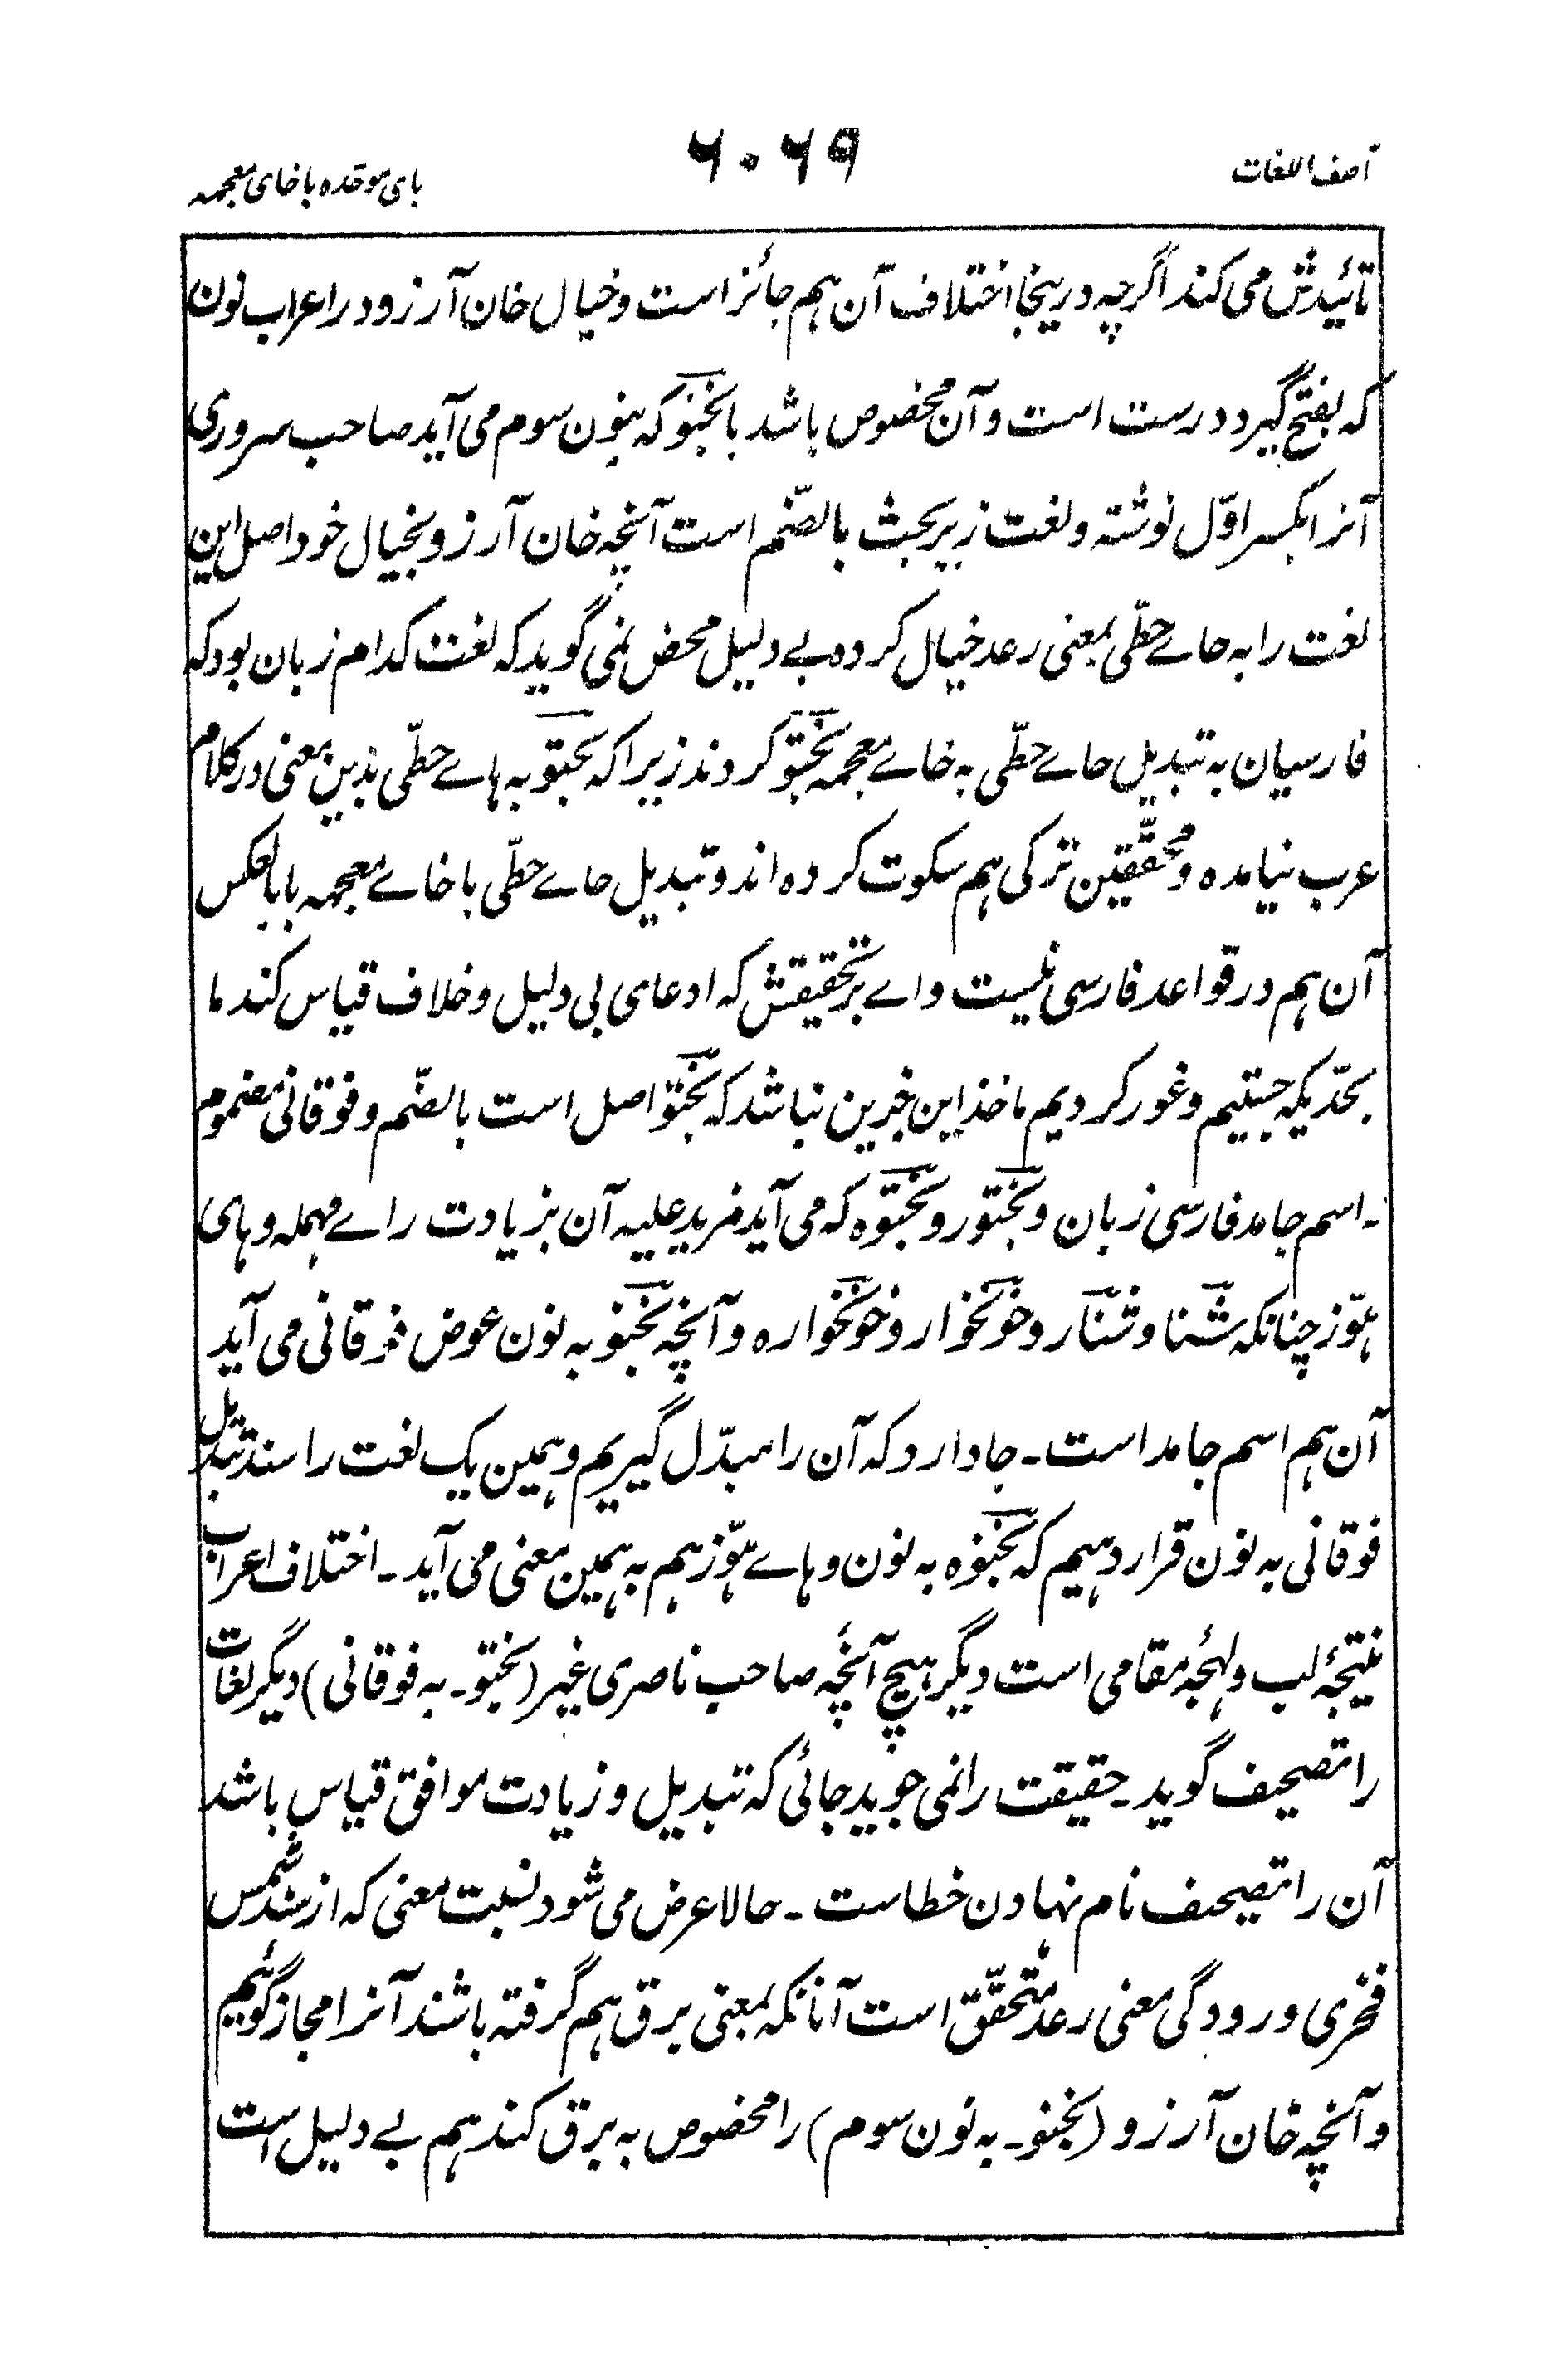 آصف اللغات
۶۰۶۹
بای موحّده با خای معجمه
تائیدش می کند اگرچه درینجا اختلاف آن هم جائز است و خیال خان آرزو در اعراب نون
که بفتح گیرد درست است و آن مخصوص باشد با بخنو که بنون سوم می آید صاحب سروری
آنرا بکسر اوّل نوشته و لغت زیر بحث بالضّم است آنچه خان آرزو بخیال خود اصل این
لغت را به حاے حطّی بمعنی رعد خیال کرده بے دلیل محض نمی گوید که لغت کدام زبان بود که
فارسیان به تبدیل حاے حطّی به خاے معجمه بختو کردند زیرا که بحتو به هاے حطّی بدین معنی در کلام
عرب نیامده و محقّقین ترکی هم سکوت کرده اند و تبدیل حاے حطّی با خاے معجمه یا بالعکس
آن هم در قواعد فارسی نیست واے بر تحقیقش که ادعای بی دلیل و خلاف قیاس کند ما
بحدّیکه جستیم و غور کردیم ماخذ این جزین نباشد که بختو اصل است بالضّم و فوقانی مضموم
۔ اسم جامد فارسی زبان و بختور و بختوه که می آید مزید علیه آن بزیادت راے مهمله و های
هوّز چنانکه شنا و شنار و خونخوار و خونخواره و آنچه بخنو به نون عوض فوقانی می آید
آن هم اسم جامد است ۔ جا دارد که آن را مبدّل گیریم و همین یک لغت را سند تبدیل
فوقانی به نون قرار دهیم که بخنوه به نون و هاے هوّز هم به همین معنی می آید ۔ اختلاف اعراب
نتیجۂ لب و لهجۂ مقامی است دیگر هیچ آنچه صاحب ناصری غیر (بختو ۔ به فوقانی) دیگر لغات
را تصحیف گوید ۔ حقیقت را نمی جوید جائی که تبدیل و زیادت موافق قیاس باشد
آن را تصحیف نام نهادن خطاست ۔ حالا عرض می شود نسبت معنی که از سند شمس
فخری و رودگی معنی رعد متحقّق است آنانکه بمعنی برق هم گرفته باشند آنرا مجاز گوئیم
و آنچه خان آرزو (بخنو ۔ به نون سوم) را مخصوص به برق کند هم بے دلیل است